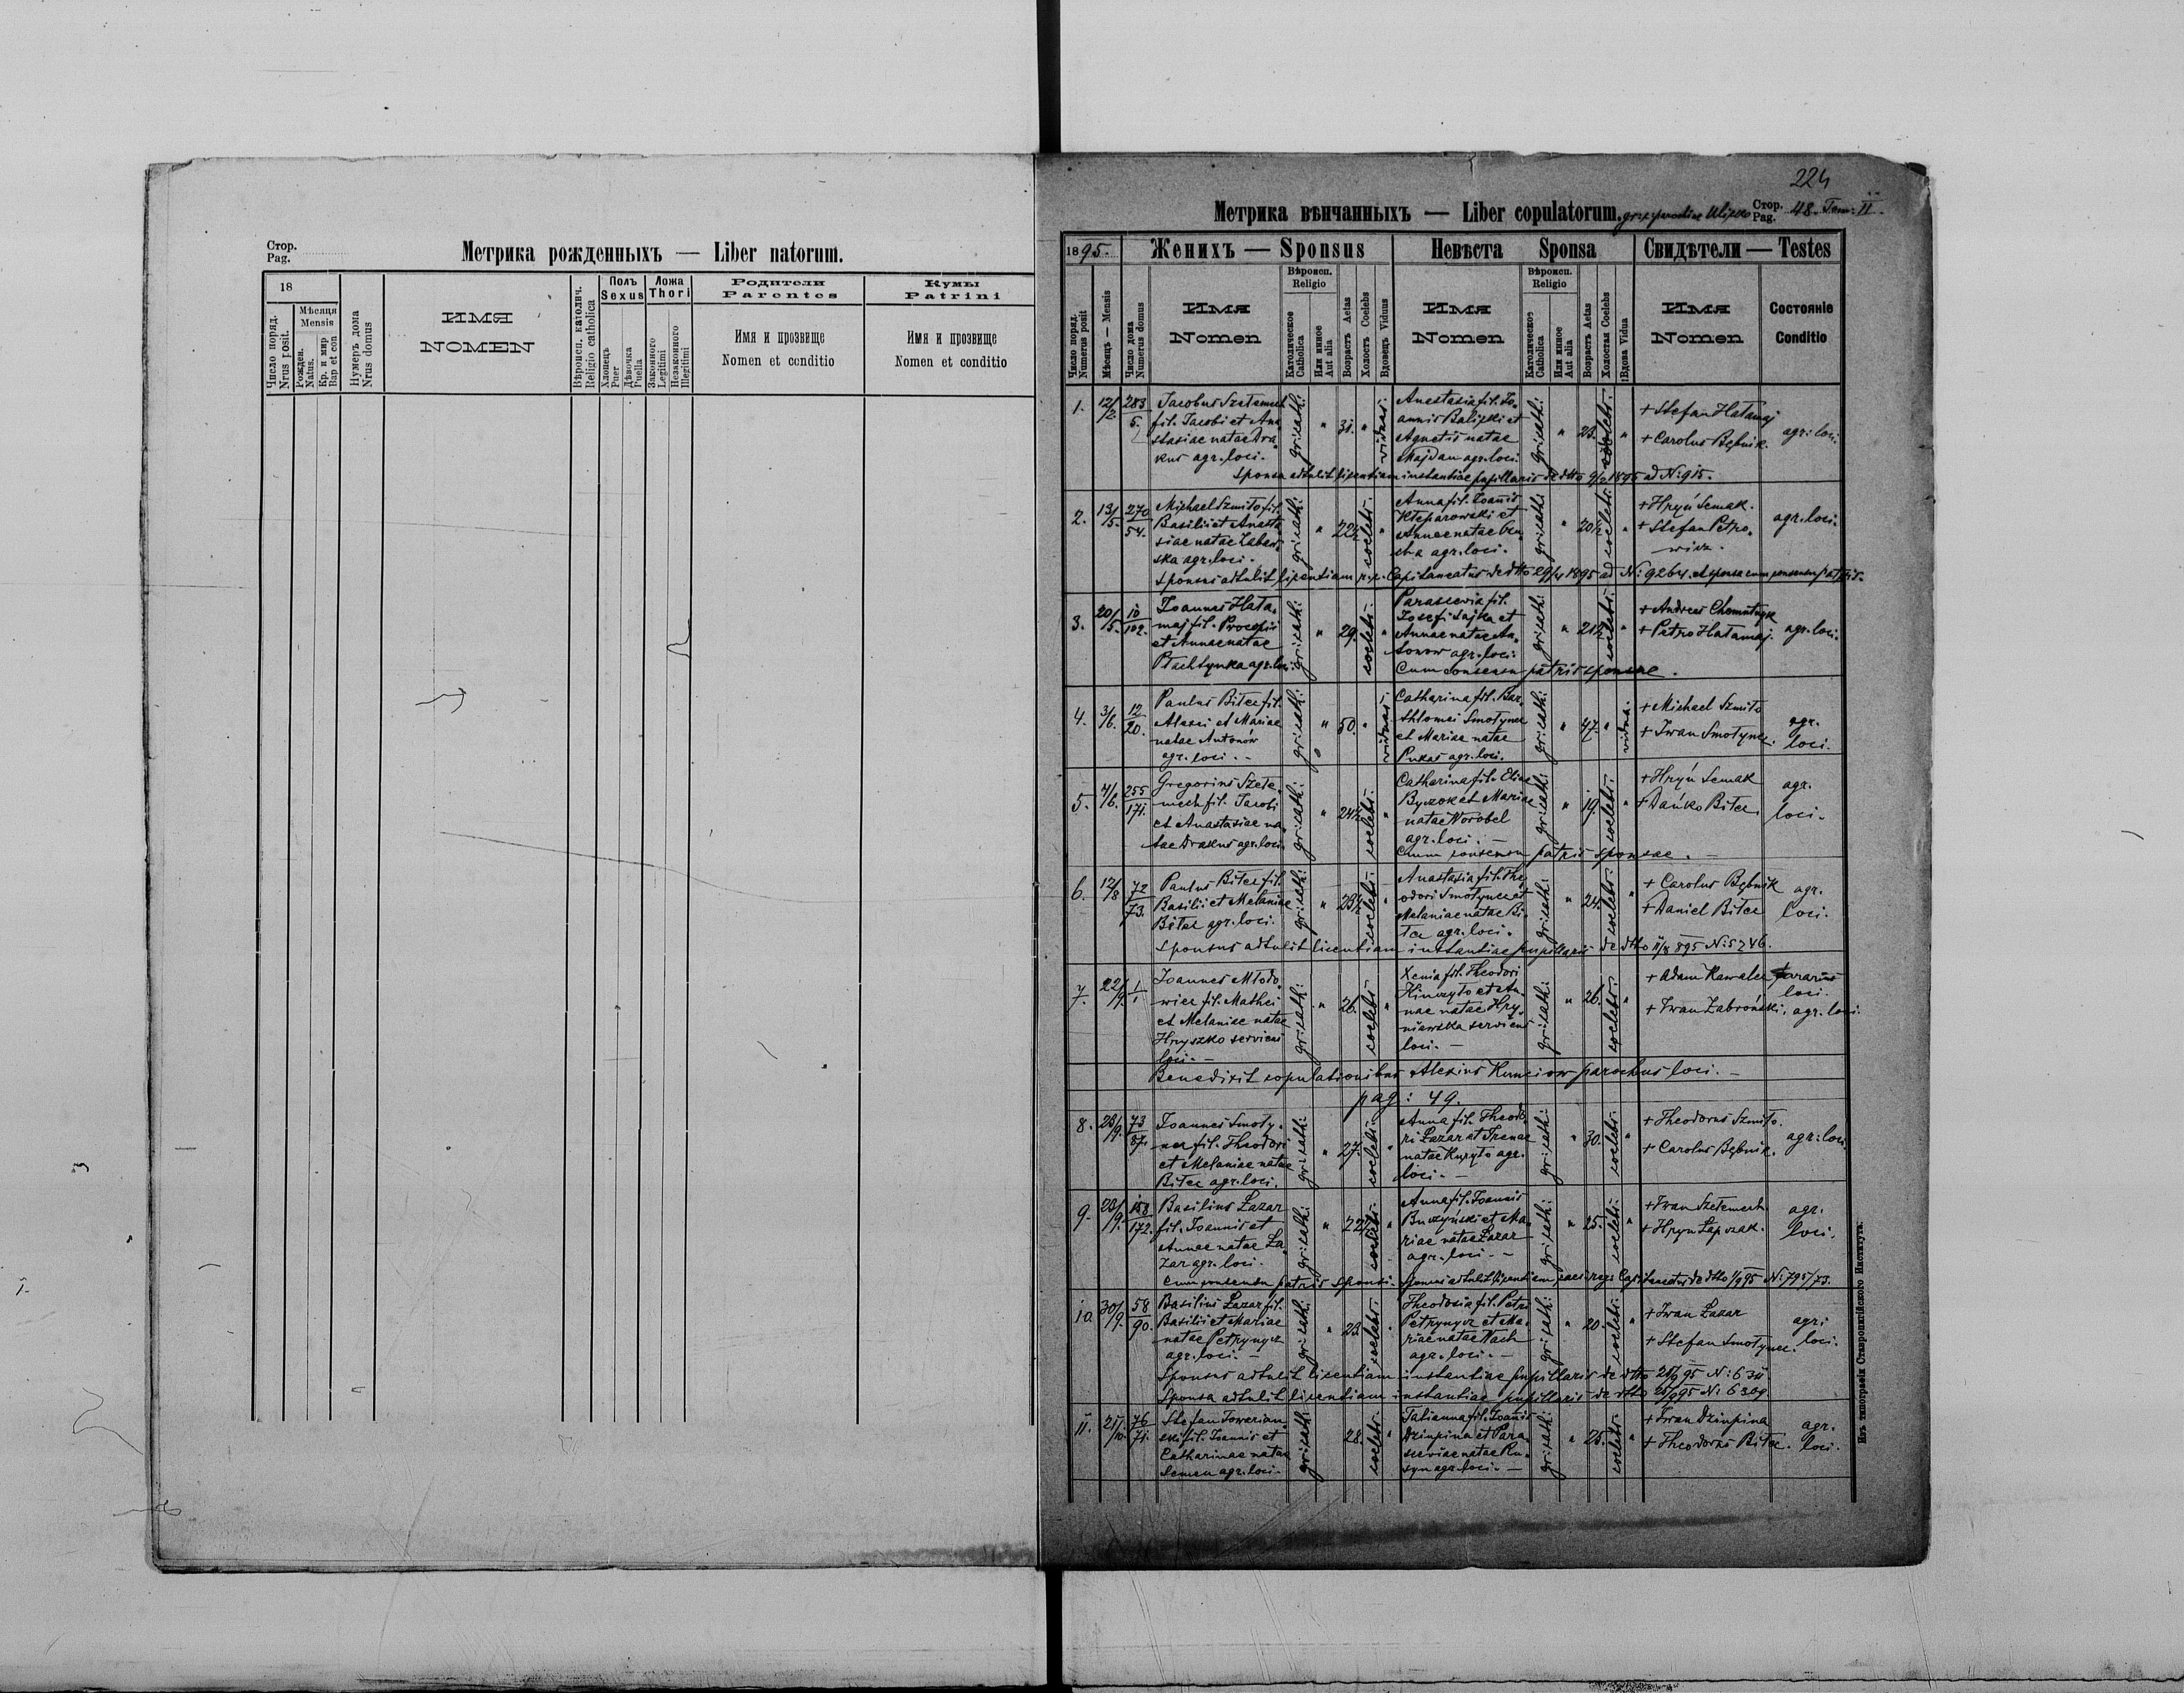 Стор.
Pag.
Метрика рожденныхъ — Liber natorum.
18
Число поряд.
Nrus posit.
Мѣсяця
Mensis
Рожден.
Natus.
Кр. и мир
Bap et con
Нумеръ дома
Nrus domus
ИМЯ
NOMEN
Вѣроисп. католич.
Religio catholica
Полъ
Sexus
Хлопецъ
Puer
Дѣвочка
Puella
Ложа
Thori
Законного
Legitimi
Незаконного
Illegitimi
Родители
Parentes
Имя и прозвище
Nomen et conditio
Кумы
Patrini
Имя и прозвище
Nomen et conditio
224
Метрика вѣнчанныхъ — Liber copulatorum.
Стор.
Pag. 48. Tom: II.
1895.
Женихъ — Sponsus
Невѣста Sponsa
Свидѣтели — Testes
Число поряд.
Numerus posit
Мѣсяцъ — Mensis
Число дома
Numerus domus
Имя
Nomen
Вѣроисп.
Religio
Католическое
Catholica
Или инное
Aut alia
Возрастъ Aetas
Холостъ Coelebs
Вдовецъ Viduus
Имя
Nomen
Вѣроисп.
Religio
Католическоэ
Catholica
Или инное
Aut alia
Возрастъ Aetas
Холостая Coelebs
Вдова Vidua
Имя
Nomen
Состояніе
Conditio
1. 12/2. 283/5.
Jacobus Szetemech
fil. Jacobi et Ana
stasiae natae Dra
kus agr. loci.
gr: cath: " 31. " viduus.
Anastasia fil. Jo
annis Balicki et
Agnetis natae
Majdan agr. loci.
gr: cath: " 23. coelebs. "
+ Stefan Hałamaj
+ Carolus Bębnik.
agr: loci.
Sponsa adtulit licentiam instantiae pupillaris de dtto 9/2 1895 ad N: 915.
2. 13/5. 270/54.
Michael Szmiło fil.
Basilii et Anasta
siae natae Zabor
ska agr. loci.
gr: cath: " 22½ coelebs. "
Anna fil. Joannis
Kleparowski et
Annae natae
agr. loci.
gr: cath: " 20½ coelebs. "
+ Hryń Semak.
+ Stefan Petro
wicz.
agr. loci.
Sponsus adtulit licentiam Capitaneatus de dtto 29/4 1895 ad N: 9264. et sponsa cum consensu patris.
3. 20/5. 10/102.
Joannes Hała
maj fil. Procopii
et Annae natae
Ptachtynka agr. loci.
gr: cath: " 29. coelebs. "
Parascevia fil.
Josefi Sajka et
Annae natae An
tonow agr. loci.
gr: cath: " 21½ coelebs. "
+ Andreas Chomutnyk
+ Petro Hałamaj.
agr. loci.
Cum consensu patris sponsae.
4. 3/6. 12/20.
Paulus Bilec fil.
Alexii et Mariae
natae Antonów
agr. loci. -
gr: cath: " 50. " viduus.
Catharina fil. Bar
tholomei Smolynec
et Mariae natae
Pukas agr. loci.
gr: cath: " 47. " vidua.
+ Michael Szmiło
+ Iwan Smolynec.
agr.
loci.
5. 4/6. 255/171.
Gregorius Szete
mech fil. Jacobi
et Anastasiae na
tae Drakus agr. loci.
gr: cath: " 24½ coelebs. "
Catharina fil. Eliae
Byczok et Mariae
natae Worobel
agr. loci. -
gr: cath: " 19. coelebs. "
+ Hryń Semak
+ Dańko Bilec.
agr.
loci.
Cum consensu patris sponsae. -
6. 12/8 72/73.
Paulus Bilec fil.
Basilii et Melaniae
Bilec agr. loci.
gr: cath: " 23½ coelebs. "
Anastasia fil. The
odori Smolynec et
Melaniae natae Bi
lec agr. loci.
gr: cath: " 24. coelebs. "
+ Carolus Bębnik
+ Daniel Bilec
agr.
loci.
Sponsus adtulit licentiam instantiae pupillaris de dtto 11/8 895 N: 5246.
7. 22/9. 1/1
Joannes Młodo
wiec fil. Mathei
et Melaniae natae
Hryszko serviens
loci. -
gr: cath: " 26. coelebs "
Xenia fil. Theodori
Hinczyło et An
nae natae Hry
niawska serviens
loci. -
gr: cath: " 26. coelebs. "
+ Adam Kawalec
+ Iwan Zabroński.
loci.
agr. loci.
Benedixit copulationibus Alexius Kunciow parochus loci. -
pag: 49.
8. 28/9. 73/87.
Joannes Smoly
nec fil. Theodori
et Melaniae natae
Bilec agr. loci.
gr: cath: " 27. coelebs. "
Anna fil. Theodo
ri Łazar et Irenae
natae Kuryło agr.
loci. -
gr: cath: " 30. coelebs. "
+ Theodorus Szmiło.
+ Carolus Bębnik.
agr: loci.
9. 28/9. 158/172.
Basilius Łazar
fil. Joannis et
Annae natae Ła
zar agr. loci.
gr: cath: " 22½ coelebs. "
Anna fil. Joannis
Buczyński et Ma
riae natae Łazar
agr. loci. -
gr: cath: " 25. coelebs. "
+ Iwan Szetemech
+ Hryn Łapczak.
agr.
loci.
Cum consensu patris sponsi. Sponsus adtulit licentiam Capitaneatus de dtto 1/9 95 N: 795/73.
10. 30/9. 58/90.
Basilius Łazar fil.
Basilii et Mariae
natae Petrynycz
agr. loci. -
gr: cath: " 23. coelebs. "
Theodosia fil. Petri
Petrynycz et Ma
riae natae Wach
agr. loci. -
gr: cath: " 20. coelebs. "
+ Iwan Łazar
+ Stefan Smolynec.
agr:
loci.
Sponsus adtulit licentiam instantiae pupillaris de dtto 28/9 95 N: 6311.
Sponsa adtulit licentiam instantiae pupillaris de dtto 28/9 95 N: 6309.
11. 21/10. 76/71.
Stefan Towarian
ski fil. Joannis et
Catharinae natae
Semen agr. loci.
gr: cath: 28. coelebs. "
Tatianna fil. Joannis
Dzinpina et Para
sceviae natae Ru
syn agr. loci. -
gr: cath: " 25. coelebs. "
+ Iwan Dzinpina
+ Theodorus Bilec.
agr.
loci.
Изъ типографіи Ставропигійского Института.